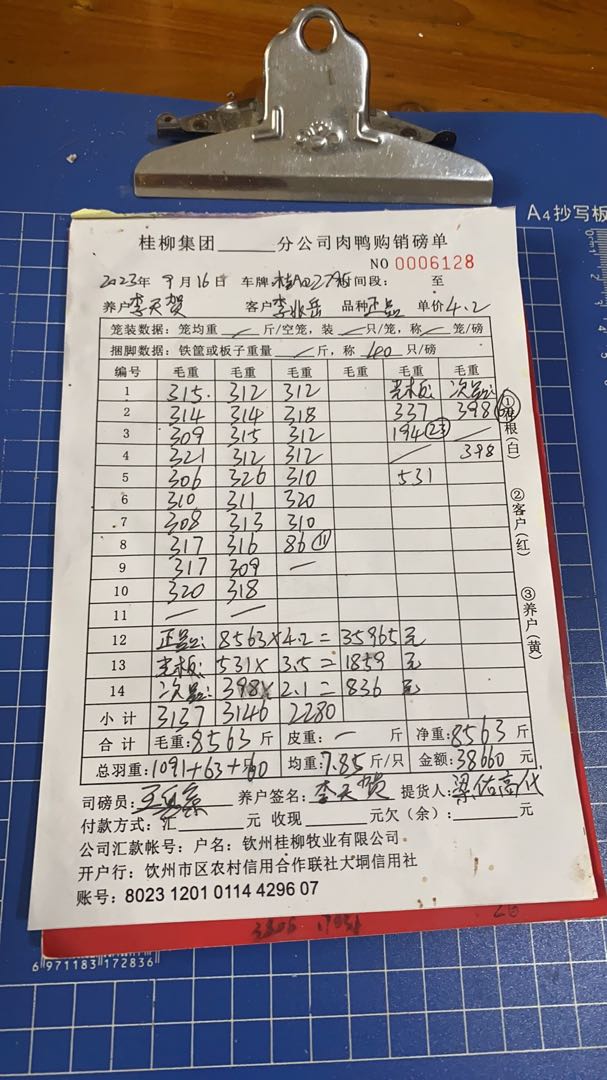 A4抄写板
桂柳集团______分公司肉鸭购销磅单
NO 0006128
2023年 9月16日 车牌:桂A02795 时间段: : 至 :
养户 李天贺 客户 李兆岳 品种 正品 单价 4.2
笼装数据: 笼均重 / 斤/空笼, 装 / 只/笼, 称 / 笼/磅
捆脚数据: 铁筐或板子重量 / 斤, 称 40 只/磅
编号 毛重 毛重 毛重 毛重 毛重 毛重
1 315. 312 312 光板: 次品:
2 314 314 318 337 398
3 309 315 312 194 (23) /
4 321 312 312 / 398
5 306 326 310 531
6 310 311 320
7 308 313 310
8 317 316 86 (11)
9 317 309 —
10 320 318
11 — —
12 正品: 8563×4.2=35965元
13 光板: 531×3.5=1859元
14 次品: 398×2.1=836元
小计 3137 3146 2280
合计 毛重:8563斤 皮重: — 斤 净重:8563斤
总羽重:1091+63+60 均重:7.85斤/只 金额:38660元
司磅员: 养户签名: 李天贺 提货人:
付款方式:汇______元 收现______元欠(余):______元
公司汇款帐号: 户名: 钦州桂柳牧业有限公司
开户行: 钦州市区农村信用合作联社大垌信用社
账号: 8023 1201 0114 4296 07
①存根(白)
②客户(红)
③养户(黄)
6 971183 172836